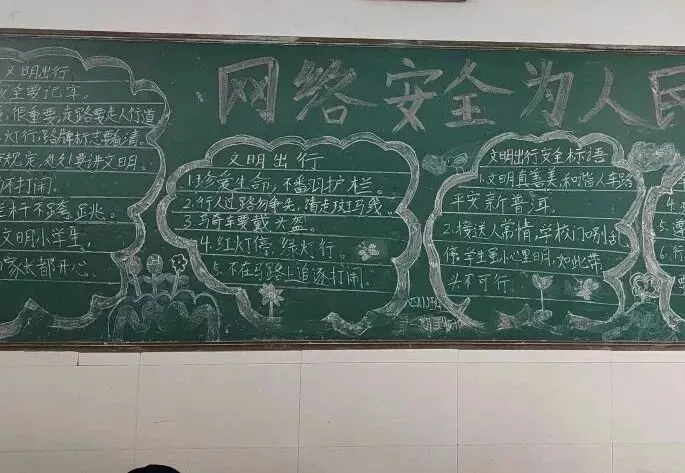 网络安全为人民
文明出行
全要记牢。
很重要,走路要走人行道
灯行,路牌标志要看清。
规定,处处要讲文明。
打闹。
栏杆不跨跳。
文明小学生,
家长都开心
文明出行
1.珍爱生命,不翻护栏。
2.行人过路勿争先,请走斑马线。
3.骑车要戴头盔。
4.红灯停,绿灯行。
5.不在马路上追逐打闹。
文明出行安全标语
1.文明真善美,和谐人车路
平安新普洱。
2.接送人常情,学校门口别乱
停,学生更小心里明,如此带
头不可行。